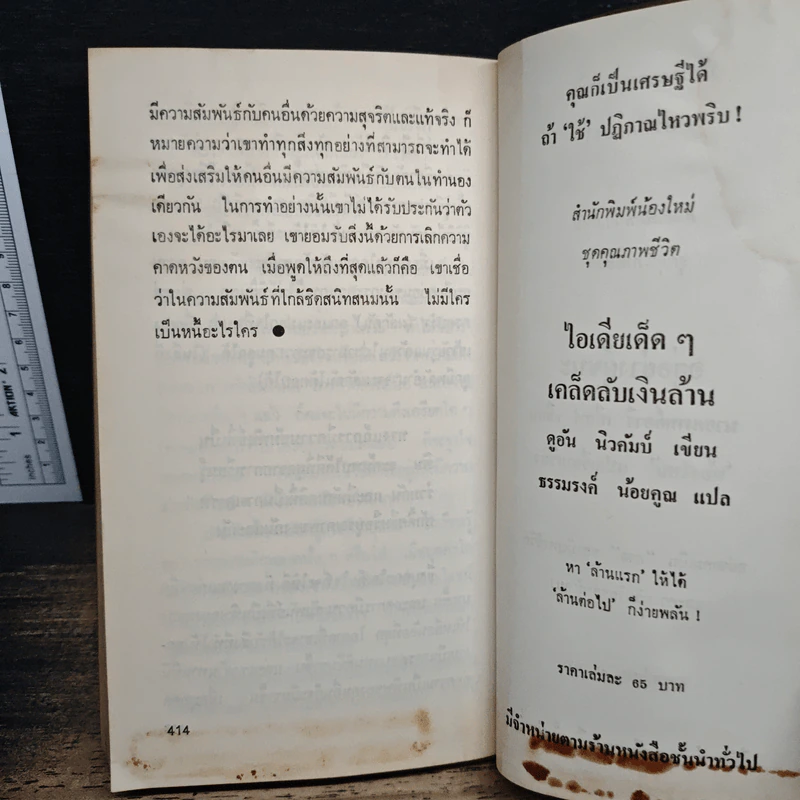 มีความสัมพันธ์กับคนอื่นด้วยความสุจริตและแท้จริง ก็
หมายความว่าเขาทำทุกสิ่งทุกอย่างที่สามารถจะทำได้
เพื่อส่งเสริมให้คนอื่นมีความสัมพันธ์กับตนในทำนอง
เดียวกัน ในการทำอย่างนั้นเขาไม่ได้รับประกันว่าตัว
เองจะได้อะไรมาเลย เขายอมรับสิ่งนี้ด้วยการเลิกความ
คาดหวังของตน เมื่อพูดให้ถึงที่สุดแล้วก็คือ เขาเชื่อ
ว่าในความสัมพันธ์ที่ใกล้ชิดสนิทสนมนั้น ไม่มีใคร
เป็นหนี้อะไรใคร ●
414
คุณก็เป็นเศรษฐีได้
ถ้า 'ใช้' ปฏิภาณไหวพริบ !
สำนักพิมพ์น้องใหม่
ชุดคุณภาพชีวิต
ไอเดียเด็ด ๆ
เคล็ดลับเงินล้าน
ดูอัน นิวคัมบ์ เขียน
ธรรมรงค์ น้อยคูณ แปล
หา 'ล้านแรก' ให้ได้
'ล้านต่อไป' ก็ง่ายพลัน !
ราคาเล่มละ 65 บาท
มีจำหน่ายตามร้านหนังสือชั้นนำทั่วไป
inches